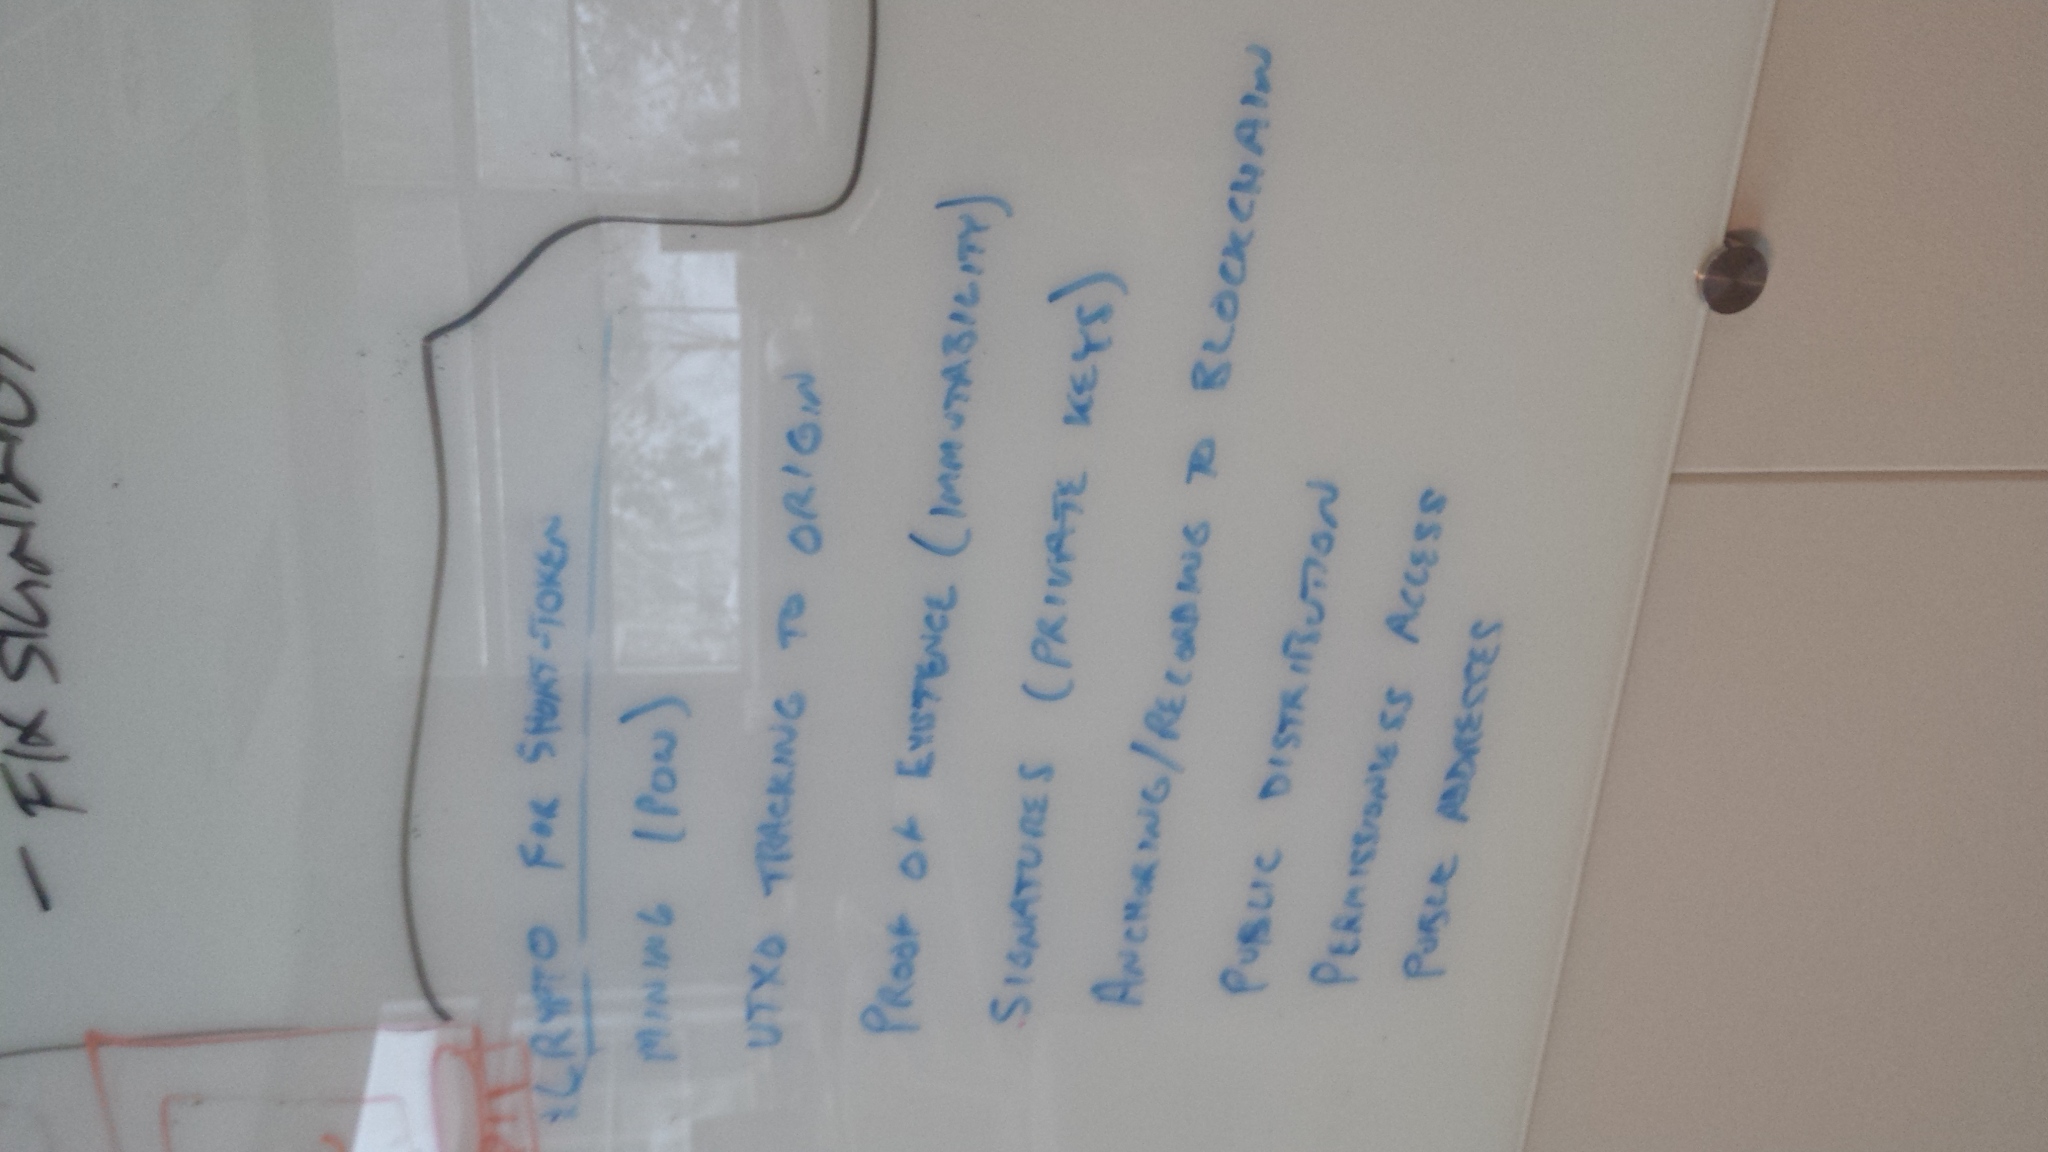 - FIX SIGNING
*CRYPTO FOR SHORT-TOKEN
MINING (POW)
UTXO TRACKING TO ORIGIN
PROOF OF EXISTENCE (IMMUTABILITY)
SIGNATURES (PRIVATE KEYS)
ANCHORING/RECORDING TO BLOCKCHAIN
PUBLIC DISTRIBUTION
PERMISSIONLESS ACCESS
PUBLIC ADDRESSES